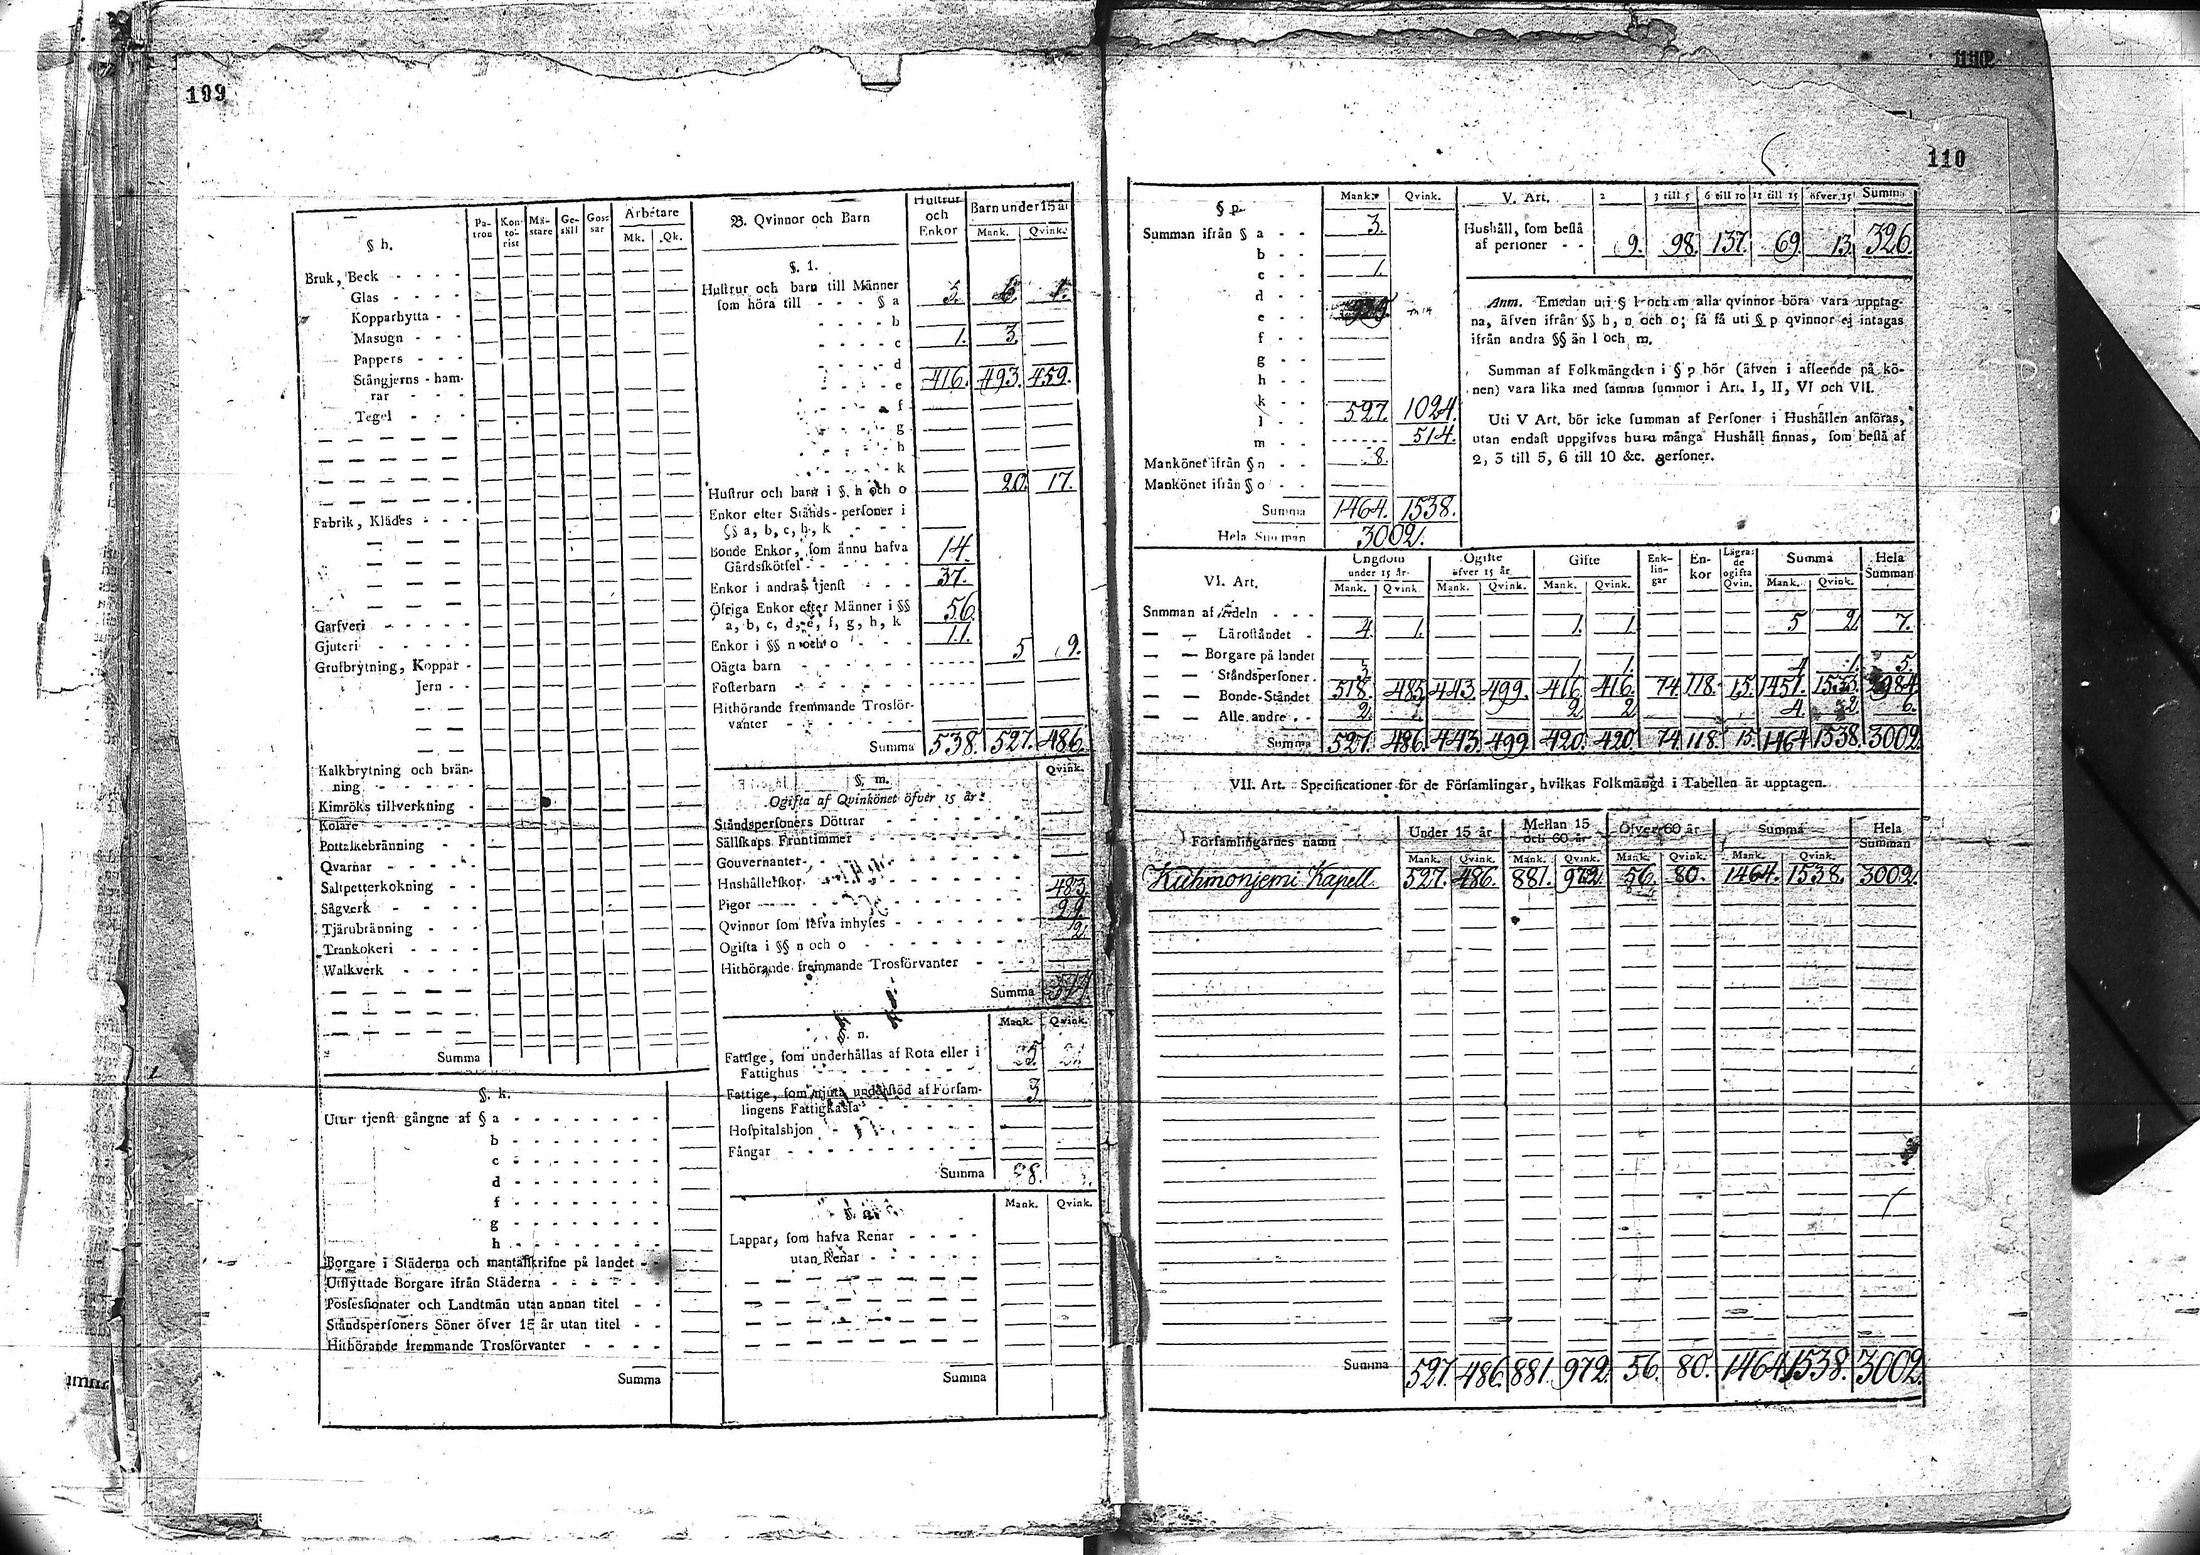 199
§ h.
Pa-tron Kon-to-rist Mä-stare Ge-säll Gos-sar Arbetare
Mk. Qk.
Bruk, Beck
Glas
Kopparhytta
Masugn
Pappers
Stångjerns-ham-
rar
Tegel
Fabrik, Klädes
Garfveri
Gjuteri
Grufbrytning, Koppar
Jern
Kalkbrytning och brän-
ning
Kimröks tillverkning
Kolare
Pottaskebränning
Qvarnar
Saltpetterkokning
Sågverk
Tjärubränning
Trankokeri
Walkverk
Summa
§. k.
Utur tjenst gångne af § a
b
c
d
f
g
h
Borgare i Städerna och mantalskrifne på landet
Utflyttade Borgare ifrån Städerna
Possessionater och Landtmän utan annan titel
Ståndspersoners Söner öfver 15 år utan titel
Hithörande fremmande Trosförvanter
Summa
B. Qvinnor och Barn Hustrur och Enkor Barn under 15 år
Mank. Qvink.
§. 1.
Hustrur och barn till Männer
som höra till § a
b
c 1. 3.
d
e 416. 493. 459.
f
g
h
k
Hustrur och barn i §. n och o 20. 17.
Enkor efter Stånds-personer i
§§ a, b, c, h, k
Bonde Enkor, som ännu hafva
Gårdsskötsel 14.
Enkor i andras tjenst 37.
Öfriga Enkor efter Männer i §§
a, b, c, d, e, f, g, h, k 56.
Enkor i §§ n och o 11.
Oägta barn 5 9.
Fosterbarn
Hithörande fremmande Trosför-
vanter
Summa 538. 527. 486.
§. m. Qvink.
Ogifta af Qvinkönet öfver 15 år:
Ståndspersoners Döttrar
Sällskaps Fruntimmer
Gouvernanter
Hushållerskor
Pigor 483.
Qvinnor som lefva inhyses
Ogifta i §§ n och o 2.
Hithörande fremmande Trosförvanter
Summa
§. n. Mank. Qvink.
Fattige, som underhållas af Rota eller i
Fattighus
Fattige, som njuta understöd af Försam-
lingens Fattigkassa 3.
Hospitalshjon
Fångar
Summa
Mank. Qvink.
Lappar, som hafva Renar
utan Renar
Summa
110
§ p. Mank. Qvink.
Summan ifrån § a 3.
b
c 1.
d
e
f
g
h
k
l 527. 1024.
m 514.
Mankönet ifrån § n 8.
Mankönet ifrån § o
Summa 1464. 1538.
Hela Summan 3002.
V. Art. 2 3 till 5 6 till 10 11 till 15 öfver 15 Summa
Hushåll, som bestå
af personer 9. 98. 137. 69. 13. 326.
Anm. Emedan uti § l och m alla qvinnor böra vara upptag-
na, äfven ifrån §§ h, n och o; så få uti § p qvinnor ej intagas
ifrån andra §§ än l och m.
Summan af Folkmängden i § p bör (äfven i afseende på kö-
nen) vara lika med samma summor i Art. I, II, VI och VII.
Uti V Art. bör icke summan af Personer i Hushållen anföras,
utan endast uppgifvas huru många Hushåll finnas, som bestå af
2, 3 till 5, 6 till 10 &c. personer.
VI. Art. Ungdom under 15 år Ogifte öfver 15 år Gifte Enk-lin-gar En-kor Lägra-de ogifta Qvin. Summa Hela Summan
Mank. Qvink. Mank. Qvink. Mank. Qvink. Mank. Qvink.
Summan af Adeln
Läroståndet 4. 1. 1. 1. 5 2. 7.
Borgare på landet
Ståndspersoner 3. 1 1. 4 1. 5.
Bonde-Ståndet 518. 485. 443. 499. 416. 416. 74. 118. 15. 1451. 1533. 2984.
Alle andre 2. 2. 2 4. 2 6.
Summa 527. 486. 443. 499. 420. 420. 74. 118. 15. 1464. 1538. 3002.
VII. Art. Specificationer för de Församlingar, hvilkas Folkmängd i Tabellen är upptagen.
Församlingarnes namn Under 15 år Mellan 15 och 60 år Öfver 60 år Summa Hela Summan
Mank. Qvink. Mank. Qvink. Mank. Qvink. Mank. Qvink.
Kuhmonjemi Kapell. 527. 486. 881. 972. 56. 80. 1464. 1538. 3002.
Summa 527. 486. 881. 972. 56. 80. 1464. 1538. 3002.